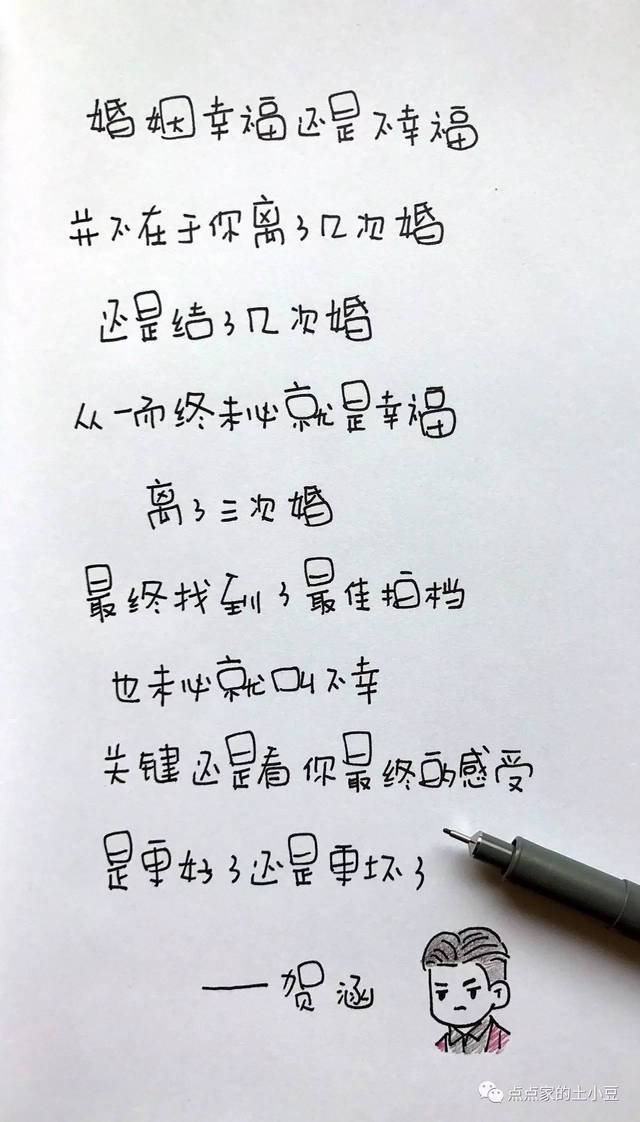 婚姻幸福还是不幸福
并不在于你离了几次婚
还是结了几次婚
从一而终未必就是幸福
离了三次婚
最终找到了最佳拍档
也未必就叫不幸
关键还是看你最终的感受
是更好了还是更坏了
——贺涵
点点家的土小豆